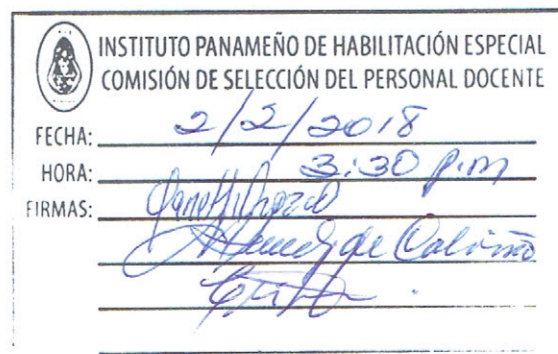 INSTITUTO PANAMEÑO DE HABILITACIÓN ESPECIAL
COMISIÓN DE SELECCIÓN DEL PERSONAL DOCENTE
FECHA: 2/2/2018
HORA: 3:30 p.m
FIRMAS:
de